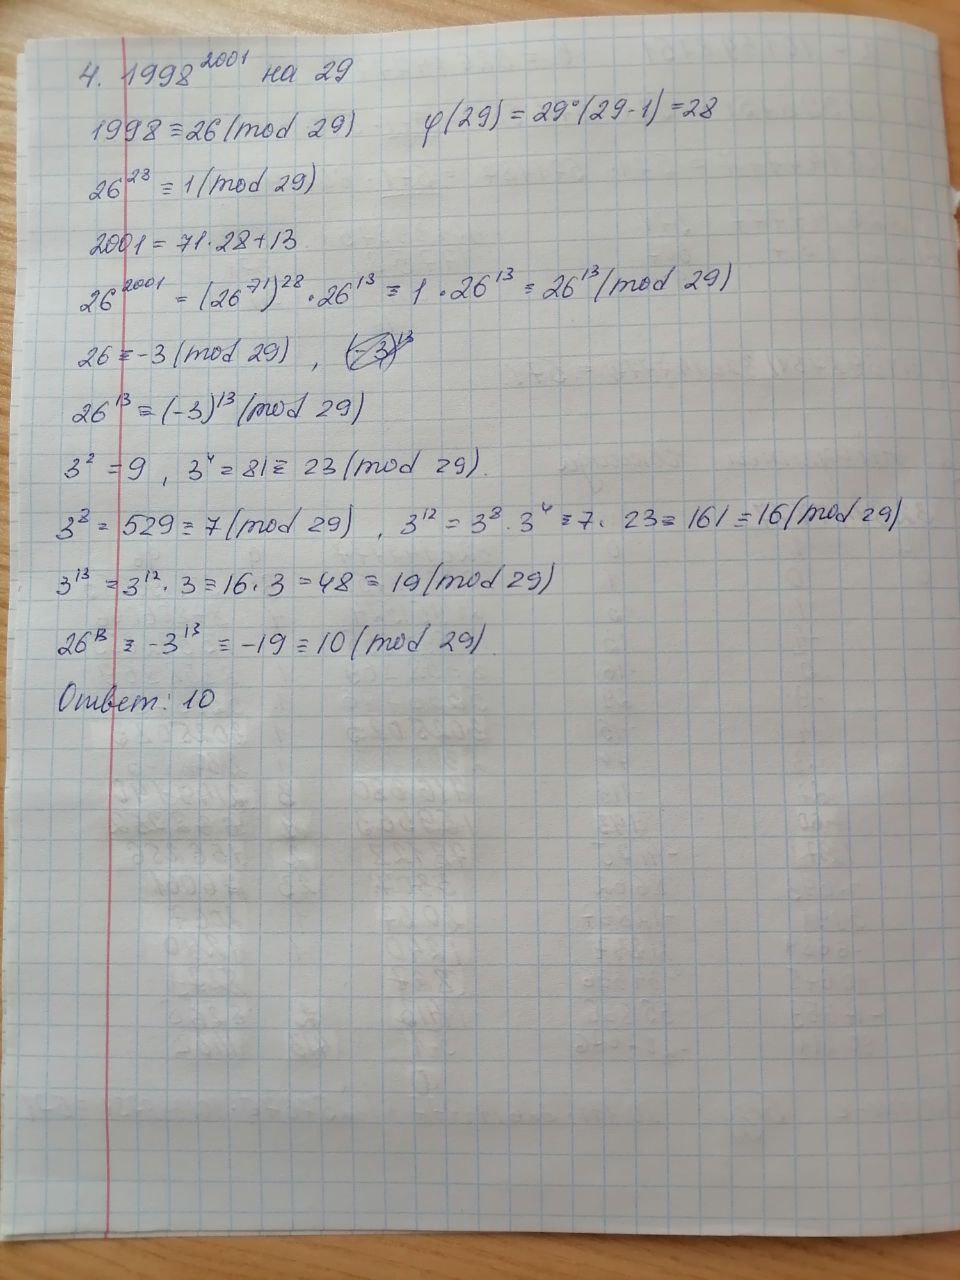 4. 1998^2001 на 29
1998 ≡ 26 (mod 29) φ(29) = 29°(29-1) = 28
26^28 ≡ 1 (mod 29)
2001 = 71·28+13
26^2001 = (26^71)^28 · 26^13 ≡ 1 · 26^13 ≡ 26^13 (mod 29)
26 ≡ -3 (mod 29) ,
26^13 ≡ (-3)^13 (mod 29)
3^2 = 9 , 3^4 = 81 ≡ 23 (mod 29).
3^8 = 529 ≡ 7 (mod 29) , 3^12 = 3^8 · 3^4 ≡ 7 · 23 ≡ 161 ≡ 16 (mod 29)
3^13 = 3^12 · 3 ≡ 16 · 3 = 48 ≡ 19 (mod 29)
26^13 ≡ -3^13 ≡ -19 ≡ 10 (mod 29).
Ответ: 10